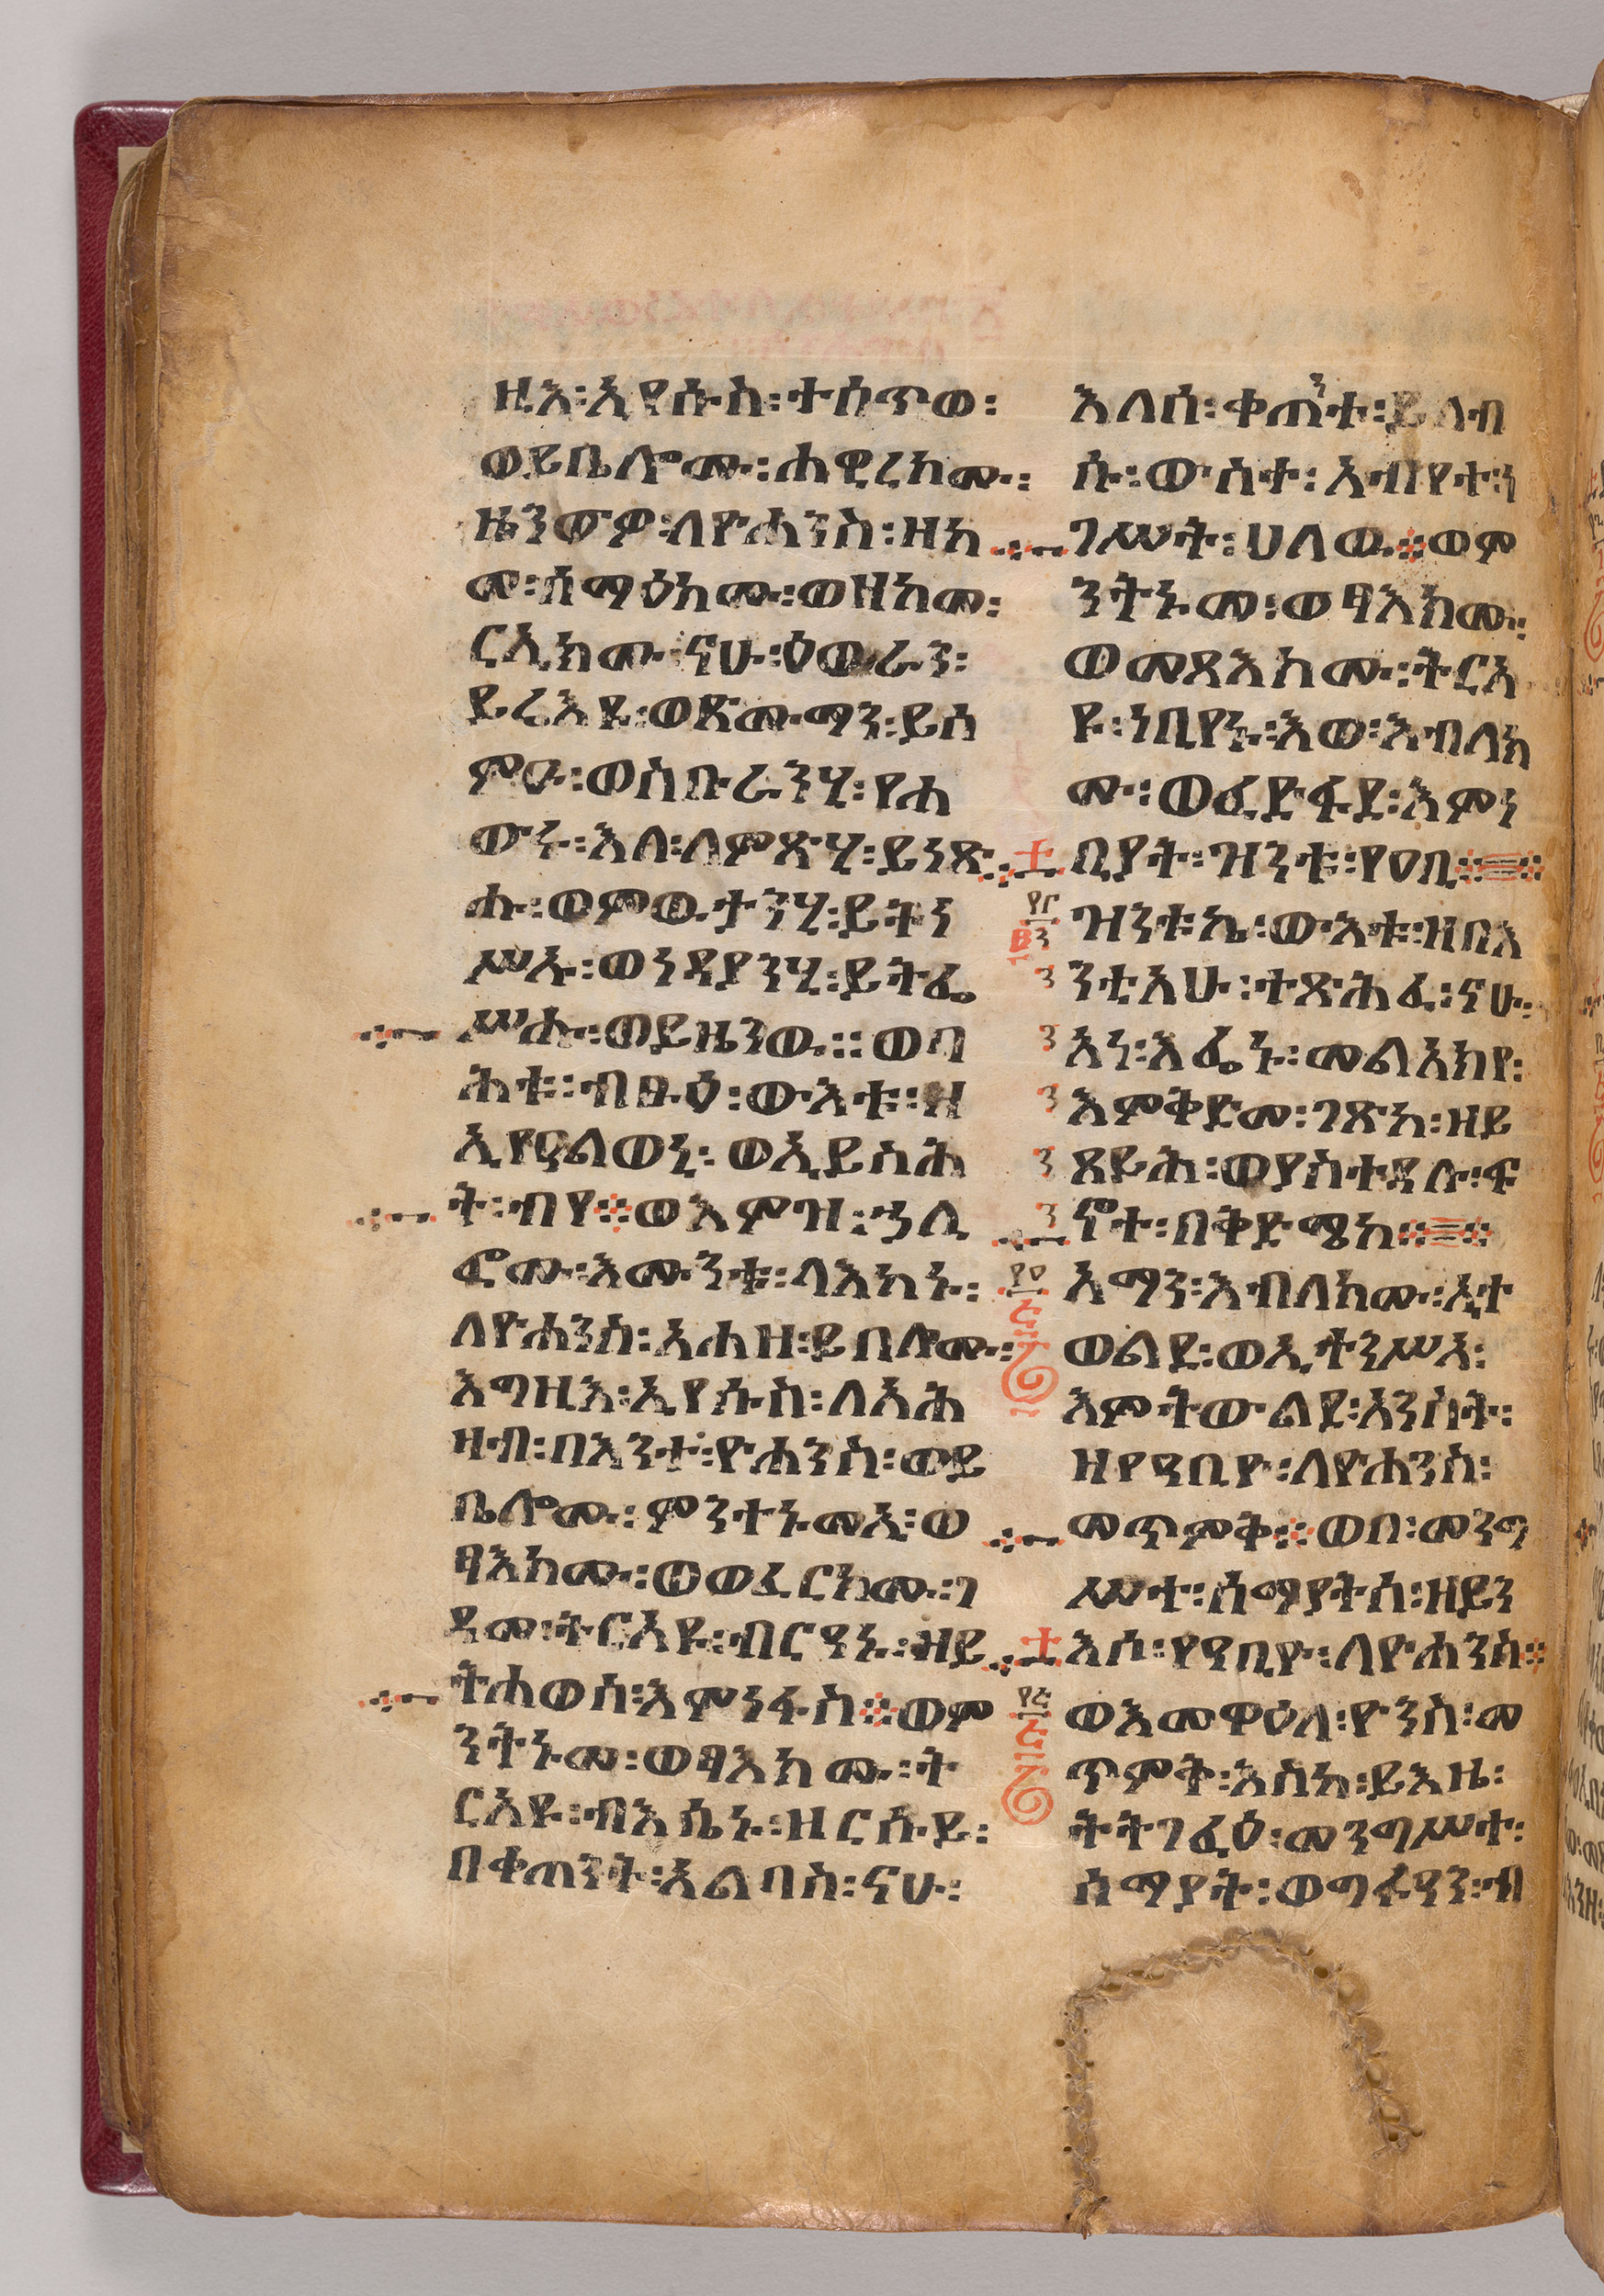 ዚአ፡ኢየሱስ፡ተሰጥወ፡
ወይቤሎሙ፡ሐዊረክሙ፡
ዜንውዎ፡ለዮሐንስ፡ዘከ
መ፡ሰማዕክሙ፡ወዘከመ፡
ርኢክሙ፡ናሁ፡ዕውራን፡
ይሬእዩ፡ወጽሙማን፡ይሰ
ምዑ፡ወስቡራንሂ፡የሐ
ውሩ፡እለ፡ለምጽሂ፡ይነጽ
ሑ፡ወምውታንሂ፡ይትነ
ሥኡ፡ወነዳያንሂ፡ይትፌ
ሥሑ፡ወይዜንው፡፡ወባ
ሕቱ፡ብፁዕ፡ውእቱ፡ዘ
ኢየዓልወኒ፡ወኢይስሕ
ት፡ብየ፨ወእምዝ፡ኃሊ
ፎሙ፡እሙንቱ፡ላእክኑ፡
ለዮሐንስ፡አሐዘ፡ይበሎሙ፡
እግዚእ፡ኢየሱስ፡ለአሕ
ዛብ፡በእንተ፡ዮሐንስ፡ወይ
ቤሎሙ፡ምንተኑመአ፡ወ
ፃእክሙ፡ወወፈርክሙ፡ገ
ዳመ፡ትርአዩ፡ብርዓኑ፡ዘይ
ትሐወስ፡እምነፋስ፨ወም
ንትኑመ፡ወፃእክሙ፡ት
ርአዩ፡ብእሴኑ፡ዘርሱይ፡
በቀጠንት፡አልባስ፡ናሁ፡
እለሰ፡ቀጠንተ፡ይለብ
ሱ፡ውስተ፡አብያተ፡ነ
ገሥት፡ሀለው፨ወም
ንትኑመ፡ወፃእክሙ፡
ወመጻእክሙ፡ትርአ
ዩ፡ነቢየኑ፡እወ፡እብለክ
ሙ፡ወፈድፋደ፡እምነ
ቢያት፡ዝንቱ፡የዐቢ፨
፲፫
ዝንቱኬ፡ውእቱ፡ዘበእ
ንቲአሁ፡ተጽሕፈ፡ናሁ፡
አነ፡እፌኑ፡መልአክየ፡
እምቅድመ፡ገጽከ፡ዘይ
ጸይሕ፡ወያስተዳሉ፡ፍ
ኖተ፡በቅድሜከ፨
፲፬
አማን፡እብለክሙ፡ኢተ
ወልደ፡ወኢተንሥአ፡
እምትውልደ፡አንስት፡
ዘየዓቢዮ፡ለዮሐንስ፡
መጥምቅ፨ወበ፡መንግ
ሥተ፡ሰማያትሰ፡ዘይን
እሰ፡የዓቢዮ፡ለዮሐንስ፨
፲፭
ወእመዋዕለ፡ዮንስ፡መ
ጥምቅ፡እስከ፡ይእዜ፡
ትትገፈዕ፡መንግሥተ፡
ሰማያት፡ወግፉዓን፡ብ